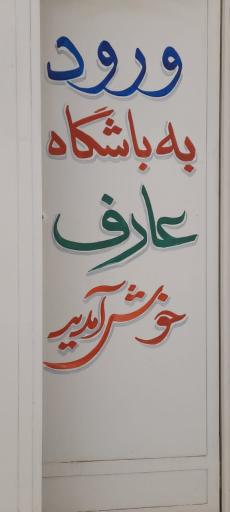 ورود
به باشگاه
عارف
خوش آمدید